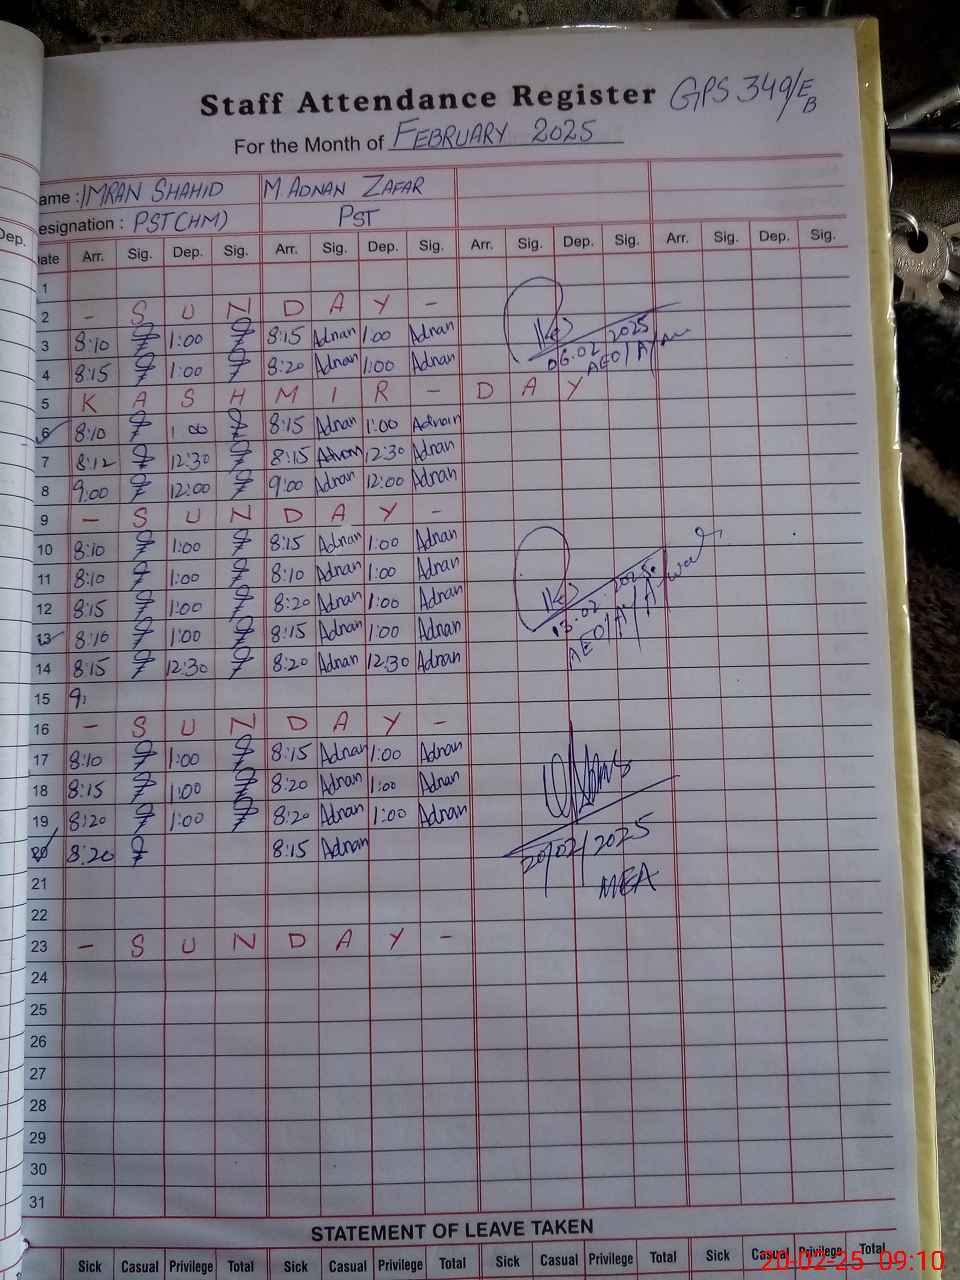 Staff Attendance Register GPS 349/EB
For the Month of FEBRUARY 2025
ame : IMRAN SHAHID M. ADNAN ZAFAR
esignation : PST (HM) PST
Dep.
ate Arr. Sig. Dep. Sig. Arr. Sig. Dep. Sig. Arr. Sig. Dep. Sig. Arr. Sig. Dep. Sig.
1
2 - S U N D A Y -
3 8:10 1:00 8:15 Adnan 1:00 Adnan
06.02.2025
4 8:15 1:00 8:20 Adnan 1:00 Adnan
5 K A S H M I R - D A Y
6 8:10 1:00 8:15 Adnan 1:00 Adnan
7 8:12 12:30 8:15 Adnan 12:30 Adnan
8 9:00 12:00 9:00 Adnan 12:00 Adnan
9 - S U N D A Y -
10 8:10 1:00 8:15 Adnan 1:00 Adnan
11 8:10 1:00 8:10 Adnan 1:00 Adnan
12 8:15 1:00 8:20 Adnan 1:00 Adnan
13.02.2025
13 8:10 1:00 8:15 Adnan 1:00 Adnan
14 8:15 12:30 8:20 Adnan 12:30 Adnan
15 9:
16 - S U N D A Y -
17 8:10 1:00 8:15 Adnan 1:00 Adnan
18 8:15 1:00 8:20 Adnan 1:00 Adnan
19 8:20 1:00 8:20 Adnan 1:00 Adnan
20 8:20 8:15 Adnan
20/02/2025
MEA
21
22
23 - S U N D A Y -
24
25
26
27
28
29
30
31
STATEMENT OF LEAVE TAKEN
Sick Casual Privilege Total Sick Casual Privilege Total Sick Casual Privilege Total Sick Casual Privilege Total
20-02-25 09:10